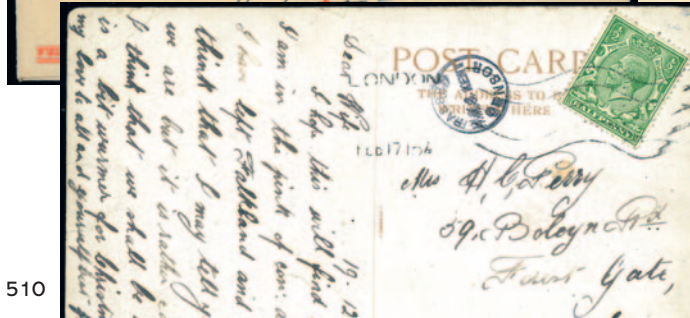 POST CARD
THE ADDRESS TO BE
WRITTEN HERE
LONDON
FEB 17 15
HALFPENNY
CENSOR
Mrs H. C. Perry
59. Boleyn Rd
Forest Gate,
19. 12
Dear Wife
I hope this will find
I am in the pink of con:
I have left Falkland and
think that I may tell y
we are but it is rather
I think that we shall be
is a bit warmer for Christm
my love to all and yourself
510